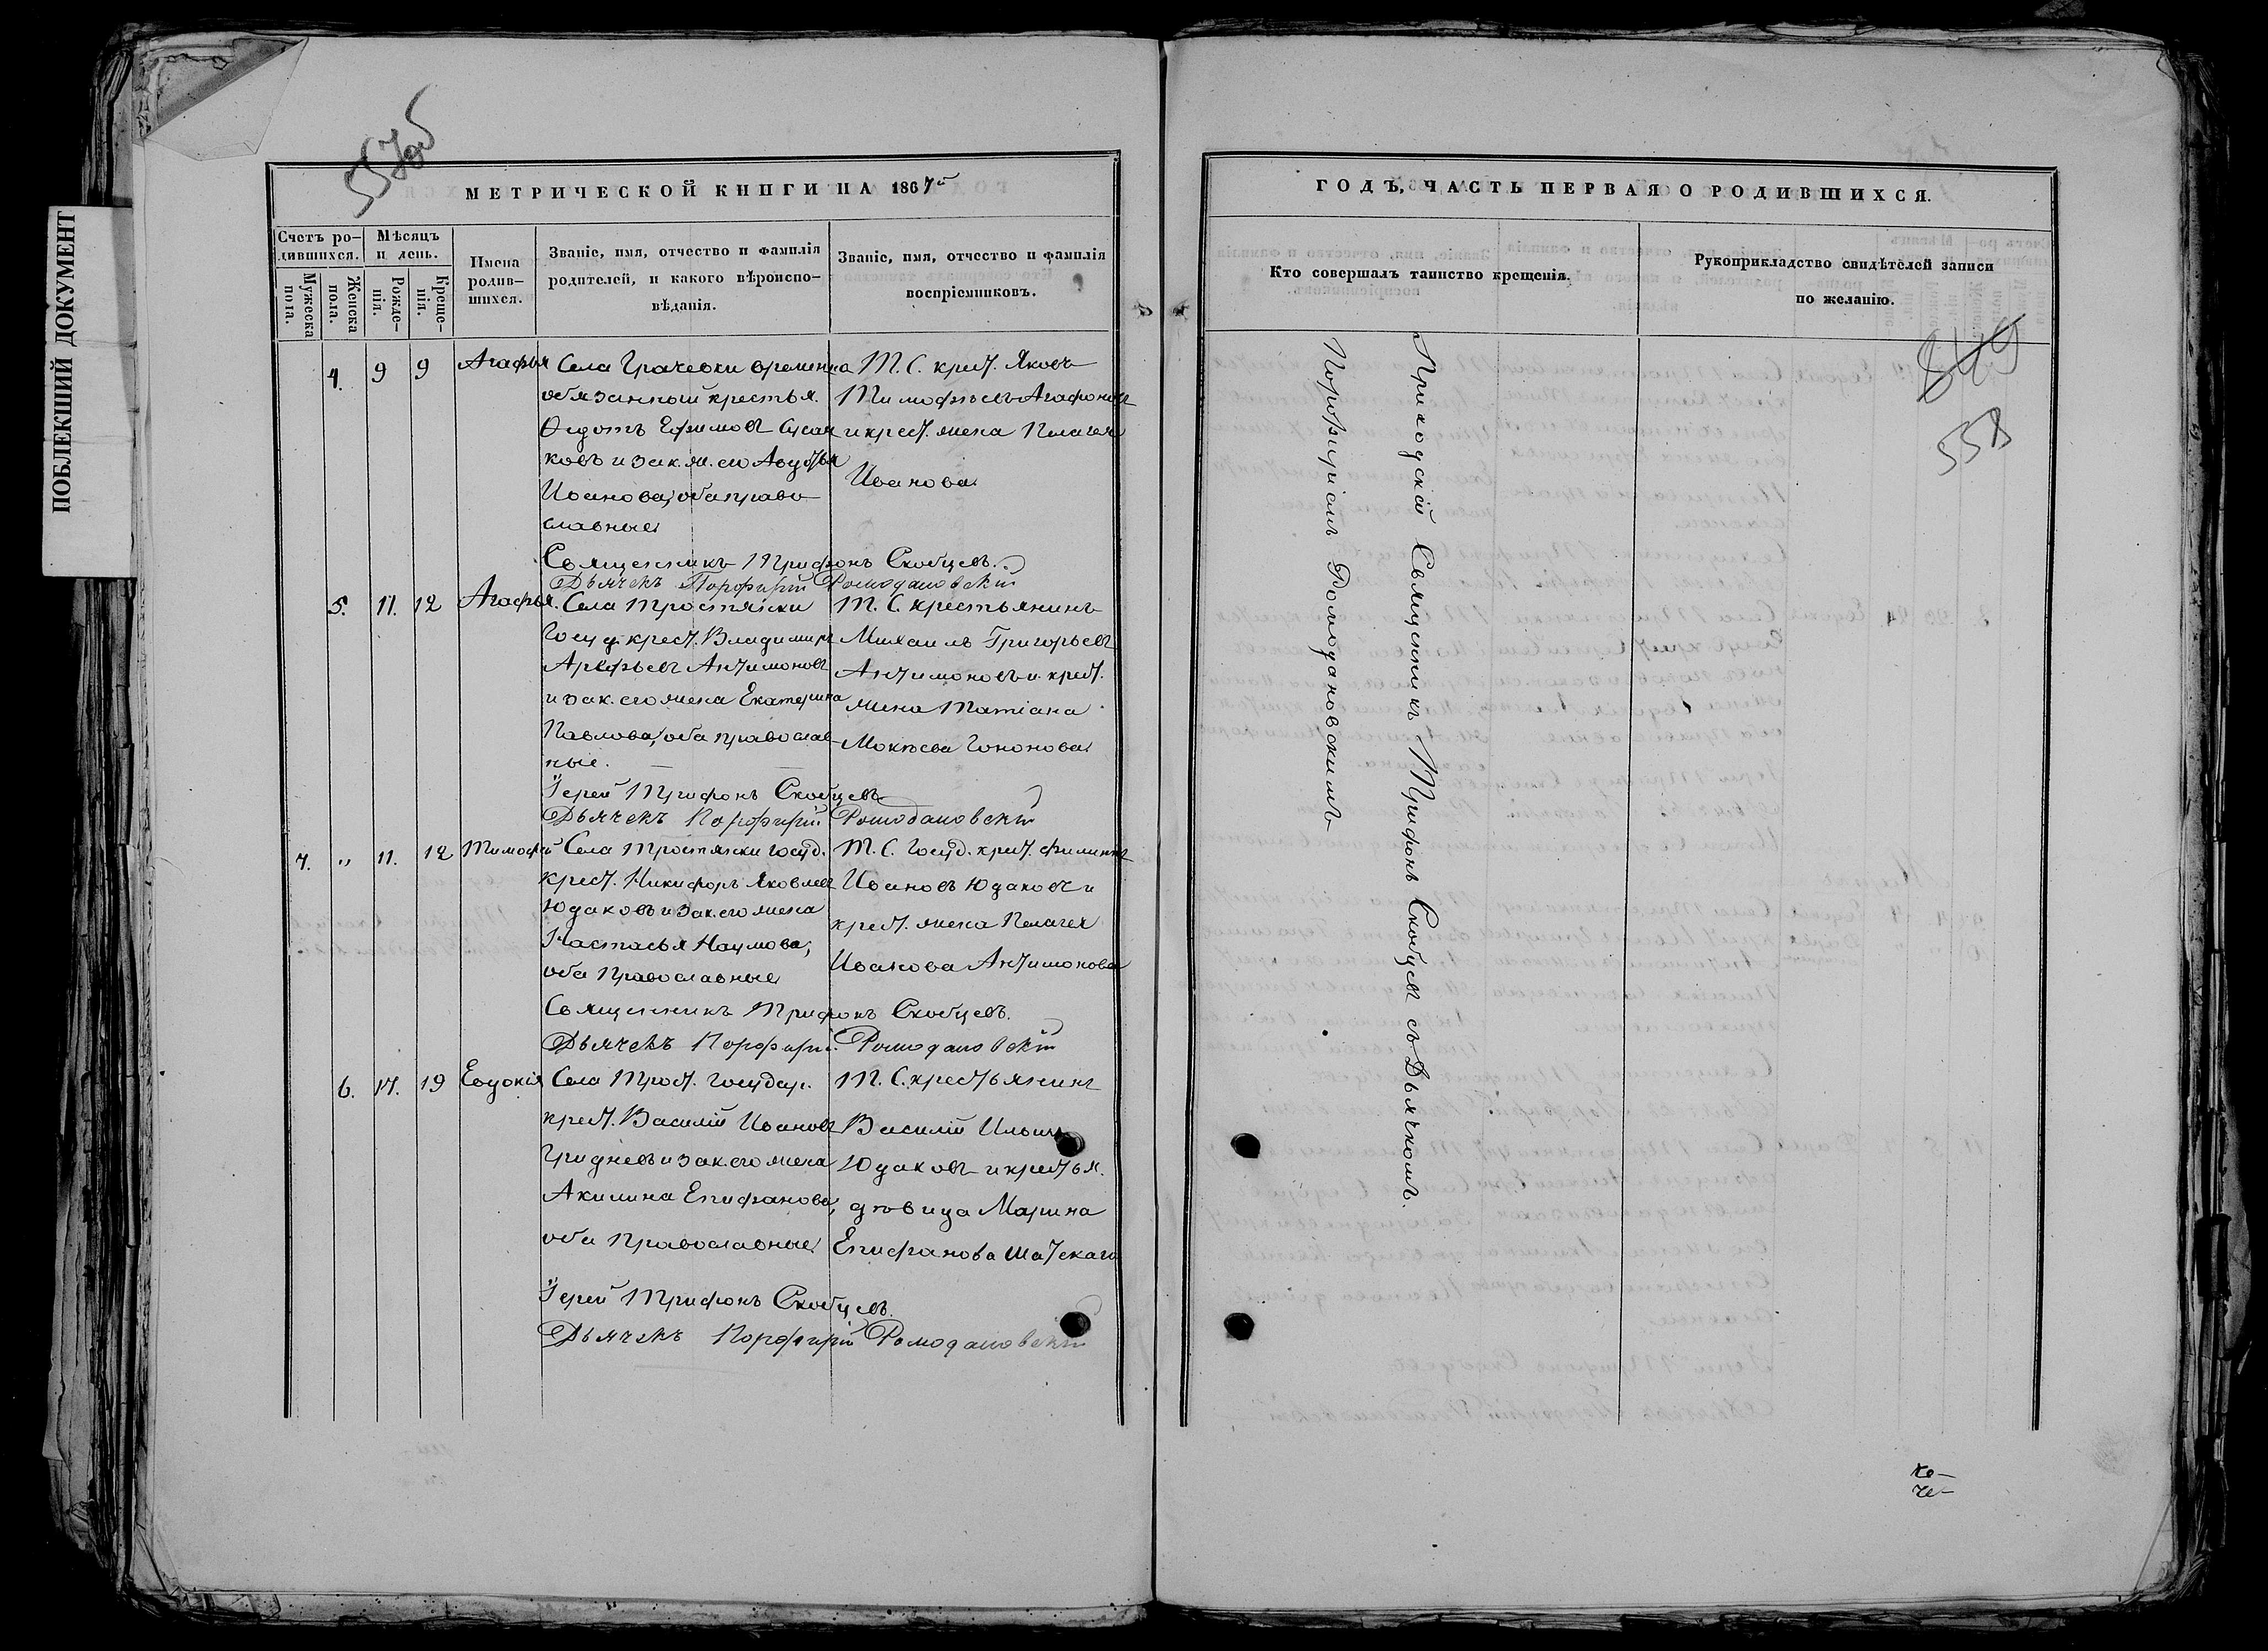 ПОБЛЕКШИЙ ДОКУМЕНТ
557об
МЕТРИЧЕСКОЙ КНИГИ НА 1867й
Счетъ родившихся.
Мужеска пола.
Женска пола.
Мѣсяцъ и день.
Рожденія.
Крещенія.
Имена родившихся.
Званіе, имя, отчество и фамилія родителей, и какого вѣроисповѣданія.
Званіе, имя, отчество и фамилія воспріемниковъ.
4. 9 9 Агафья
Села Грачевки временно
обязанный крестья.
Ѳедотъ Ефимовъ
ковъ и зак. ж. его Авдотья
Иванова, оба право
славные
Т. С. крест. Яковъ
Тимофѣевъ Агафоновъ
и крест. жена Пелагея
Иванова
Священникъ Трифонъ Скобцевъ.
Дьячекъ Порфирій Ромодановскій
5. 11. 12 Агафья.
Села Тростянки
Госуд. крест. Владимиръ
Арефьевъ Антимоновъ
и зак. его жена Екатерина
Павлова, оба православ
ные.
Т. С. крестьянинъ
Михаилъ Григорьевъ
Антимоновъ и крест.
жена Татіана
Мокѣева Гононова
Іерей Трифонъ Скобцевъ
Дьячекъ Порфирій Ромодановскій
7. " 11. 12 Тимофей
Села Тростянки Госуд.
крест. Никифоръ Яковлевъ
Юдаковъ и зак. его жена
Настасья Наумова,
оба Православные
Т. С. Госуд. крест. Филиппъ
Ивановъ Юдаковъ и
крест. жена Пелагея
Иванова Антимонова
Священникъ Трифонъ Скобцевъ.
Дьячекъ Порфирій Ромодановскій
6. 17. 19 Евдокія
Села Трост. Государ.
крест. Василій Ивановъ
Гридневъ и зак. его жена
Акилина Епифанова,
оба Православные
Т. С. крестьянинъ
Василій Ильинъ
Юдаковъ и крестья.
дѣвица Марина
Епифанова Шатскаго
Іерей Трифонъ Скобцевъ.
Дьячекъ Порфирій Ромодановскій
ГОДЪ, ЧАСТЬ ПЕРВАЯ О РОДИВШИХСЯ.
Кто совершалъ таинство крещенія.
Рукоприкладство свидѣтелей записи по желанію.
849
558
Приходскій Священникъ Трифонъ Скобцевъ съ Дьячкомъ
Порфиріемъ Ромодановскимъ